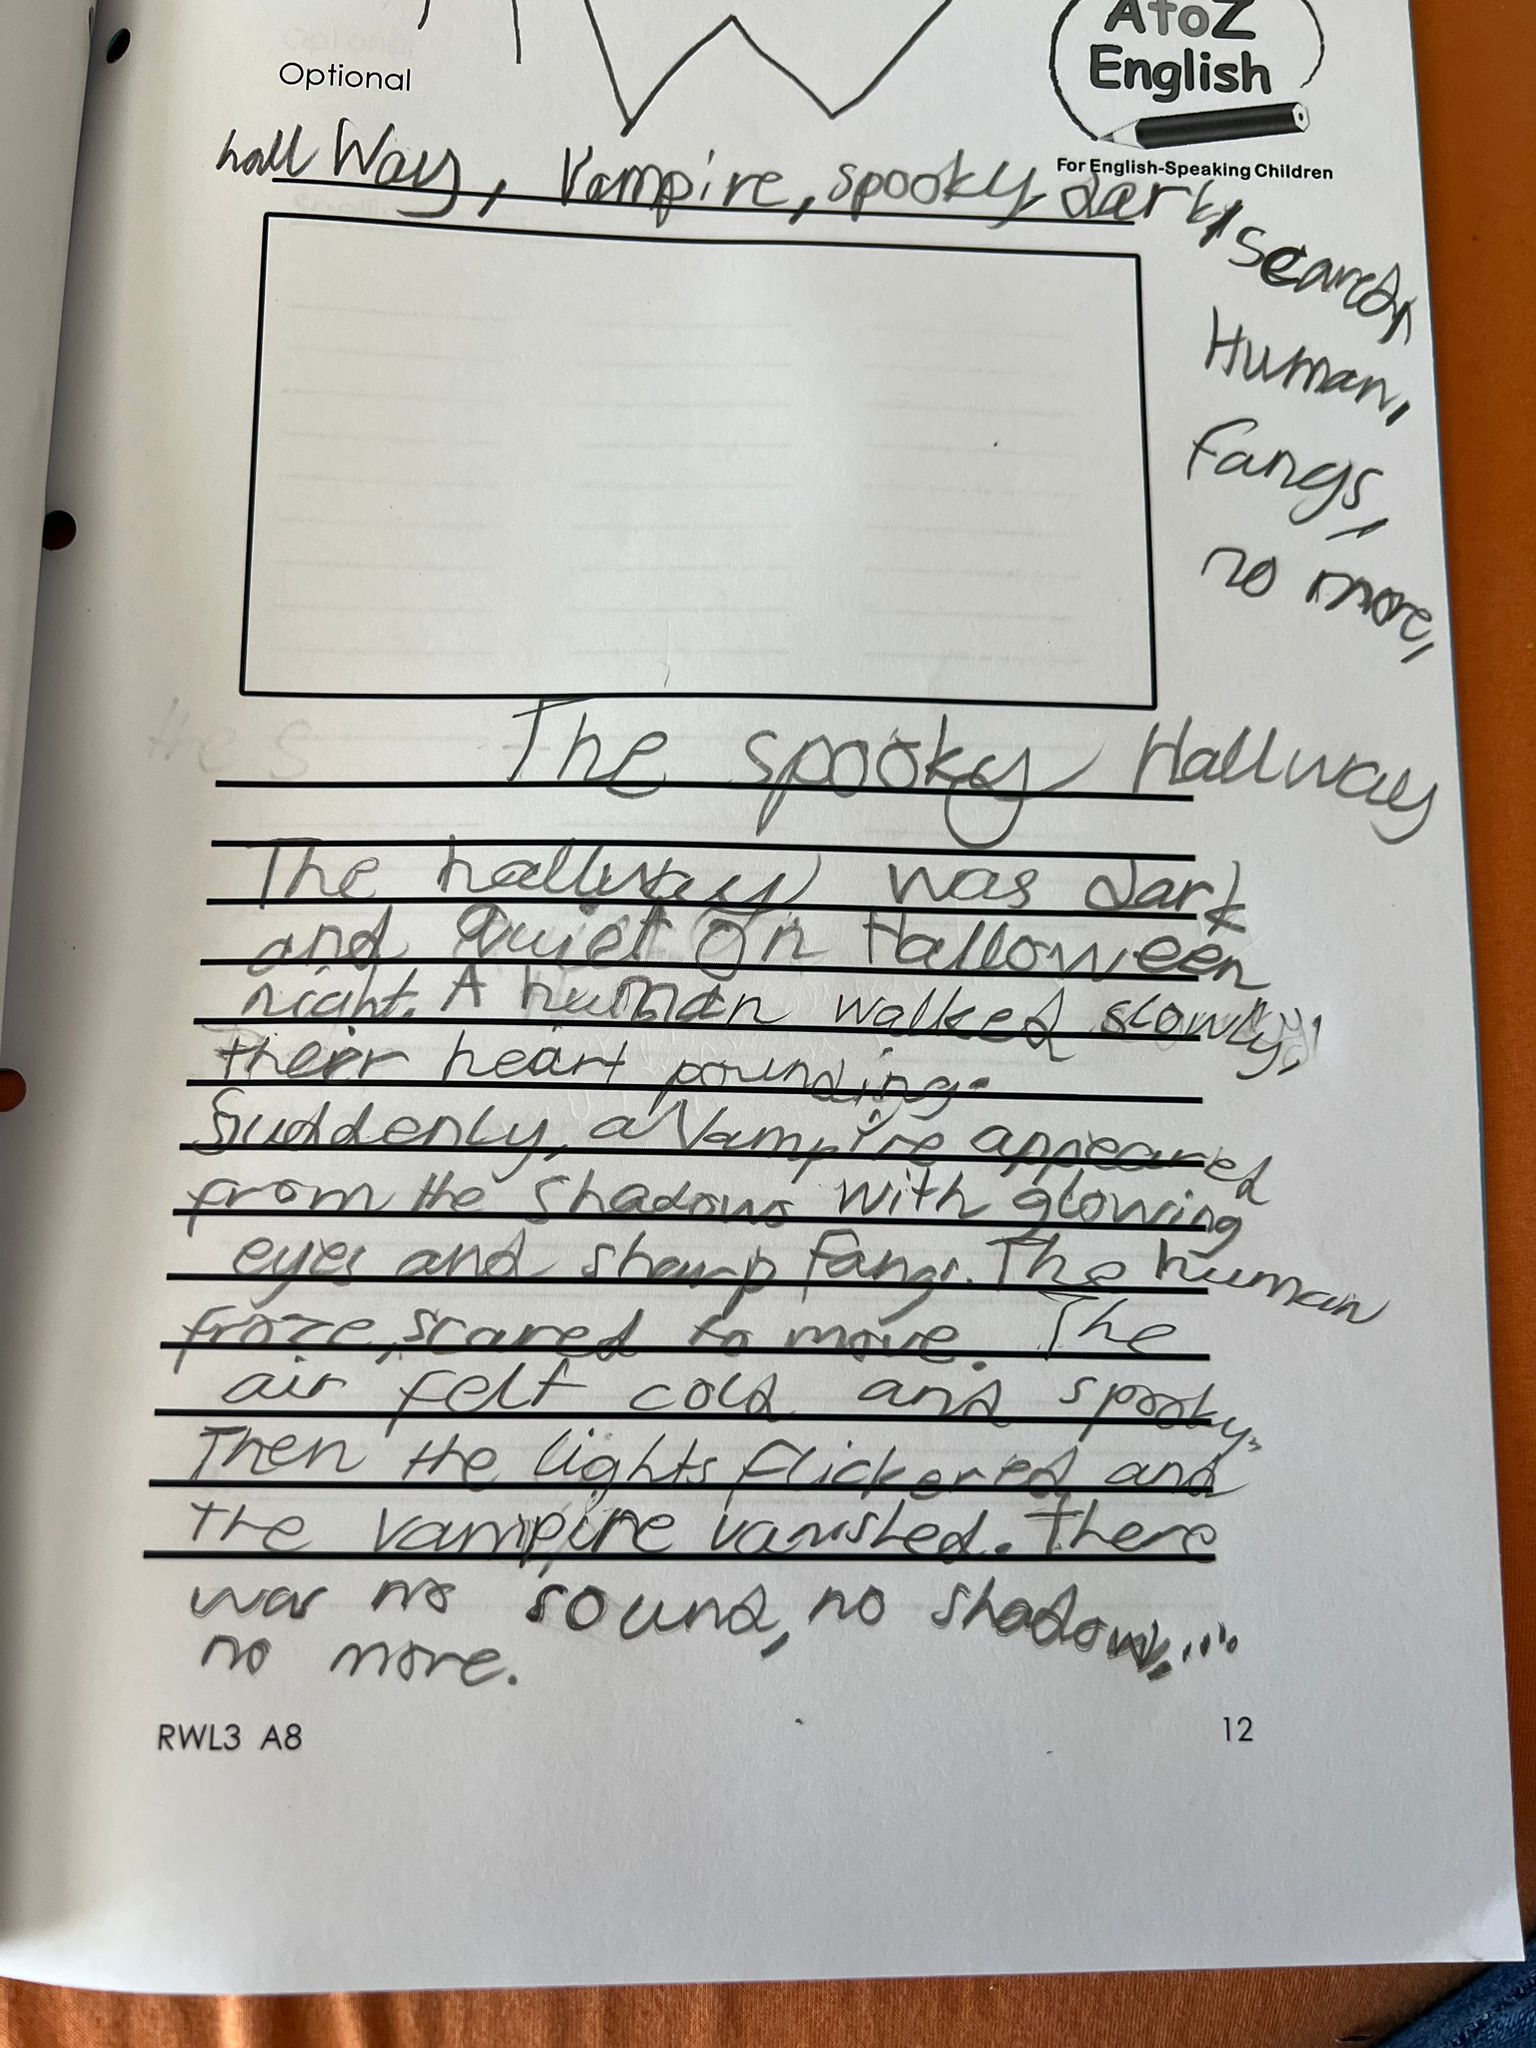 AtoZ
English
Optional
For English-Speaking Children
hall Way, Vampire, spooky, dark,
search,
Human,
Fangs,
no more,
The spooky Hallway
The hallway was dark
and Quiet On Halloween
night. A human walked slowly,
Their heart pounding.
Suddenly, a Vampire appeared
from the shadows with glowing
eyes and sharp fangs. The human
froze, scared to move. The
air felt cold and spooky.
Then the lights flickered and
the vampire vanished. There
was no sound, no shadow,....
no more.
RWL3 A8
12